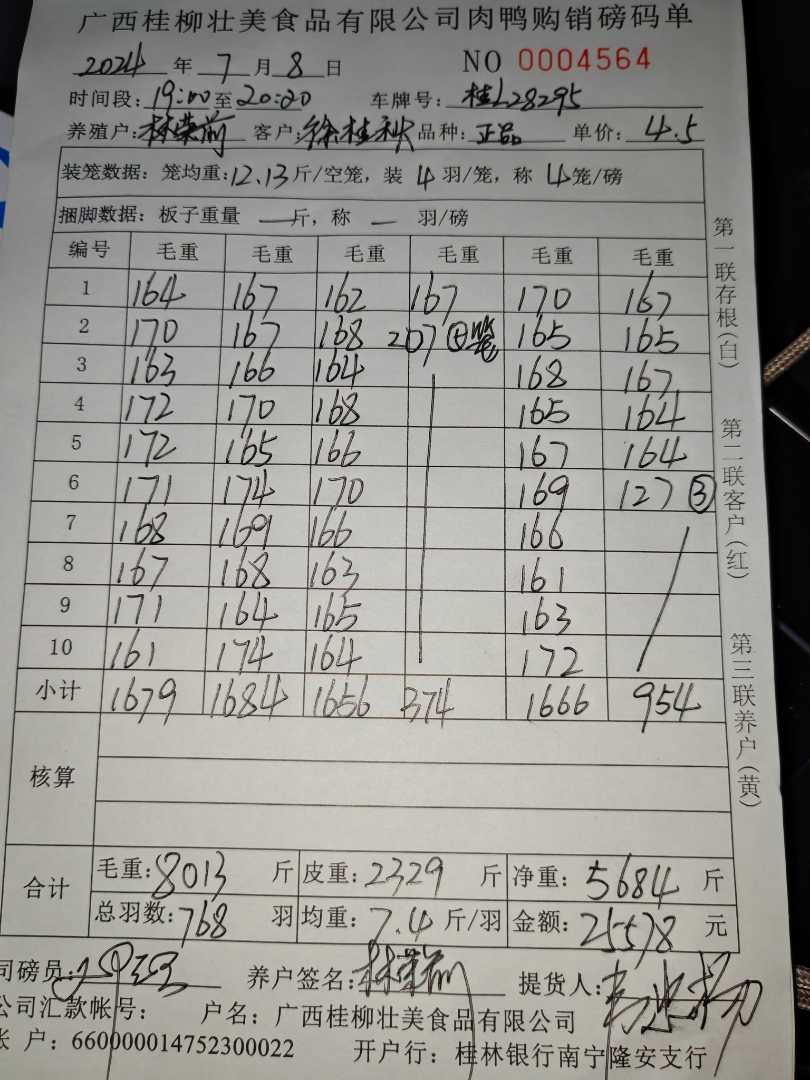 广西桂柳壮美食品有限公司肉鸭购销磅码单
2024 年 7 月 8 日 NO 0004564
时间段: 19:00 至 20:20 车牌号: 桂L28295
养殖户: 林荣前 客户: 徐桂秋 品种: 正品 单价: 4.5
装笼数据: 笼均重: 12.13 斤/空笼, 装 4 羽/笼, 称 4 笼/磅
捆脚数据: 板子重量 — 斤, 称 — 羽/磅
编号 毛重 毛重 毛重 毛重 毛重 毛重
1 164 167 162 167 170 167
2 170 167 168 207 ⊕笼 165 165
3 163 166 164 168 167
4 172 170 168 165 164
5 172 165 166 167 164
6 171 174 170 169 127 ③
7 168 169 166 166
8 167 168 163 161
9 171 164 165 163
10 161 174 164 172
小计 1679 1684 1656 374 1666 954
核算
合计 毛重: 8013 斤 皮重: 2329 斤 净重: 5684 斤
总羽数: 768 羽 均重: 7.4 斤/羽 金额: 25578 元
司磅员: 养户签名: 林荣前 提货人:
公司汇款帐号: 户名: 广西桂柳壮美食品有限公司
帐 户: 660000014752300022 开户行: 桂林银行南宁隆安支行
第一联存根(白)
第二联客户(红)
第三联养户(黄)